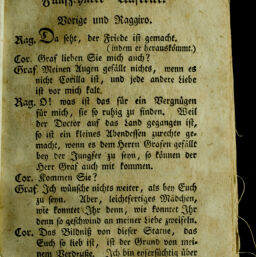 Fünfzehnter Auftritt.
Vorige und Raggiro.
Rag. Da seht, der Friede ist gemacht.
(indem er herauskömmt.)
Cor. Graf lieben Sie mich auch?
Graf Meinen Augen gefällt nichts, wenn es
nicht Corilla ist, und jede andere Liebe
ist vor mich kalt.
Rag. O! was ist das für ein Vergnügen
für mich, sie so ruhig zu finden. Weil
der Doctor auf das Land gegangen ist,
so ist ein kleines Abendessen zurechte ge-
macht, wenn es dem Herrn Grafen gefällt
bey der Jungfer zu seyn, so können der
Herr Graf auch mit kommen.
Cor. Kommen Sie?
Graf Ich wünsche nichts weiter, als bey Euch
zu seyn. Aber, leichtfertiges Mädchen,
wie konntet Ihr denn, wie konntet Ihr
denn so geschwind an meiner Liebe zweifeln.
Cor. Das Bildniß von dieser Statue, das
Euch so lieb ist, ist der Grund von mei-
nem Verdruße. Ich bin eifersüchtig über